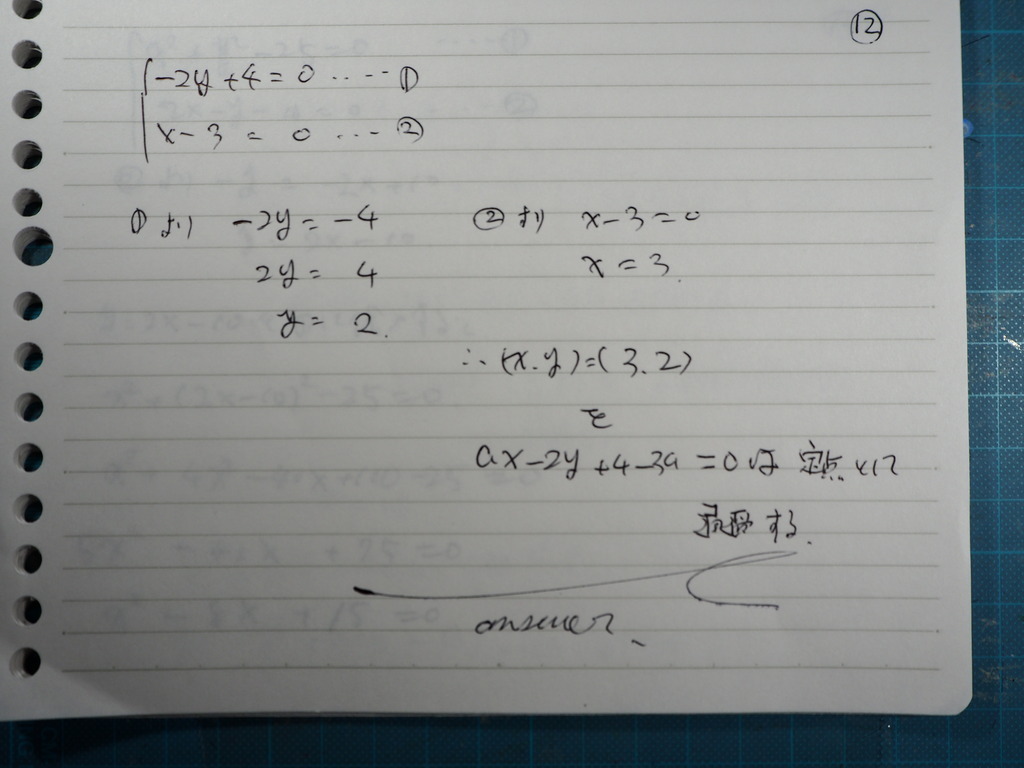 ⑫
-2y+4=0 ..... ①
x-3 = 0 .... ②
① より -2y=-4
2y= 4
y= 2.
② より x-3=0
x=3.
∴(x.y)=(3.2)
を
ax-2y+4-3a=0は 定点として
する.
answer.